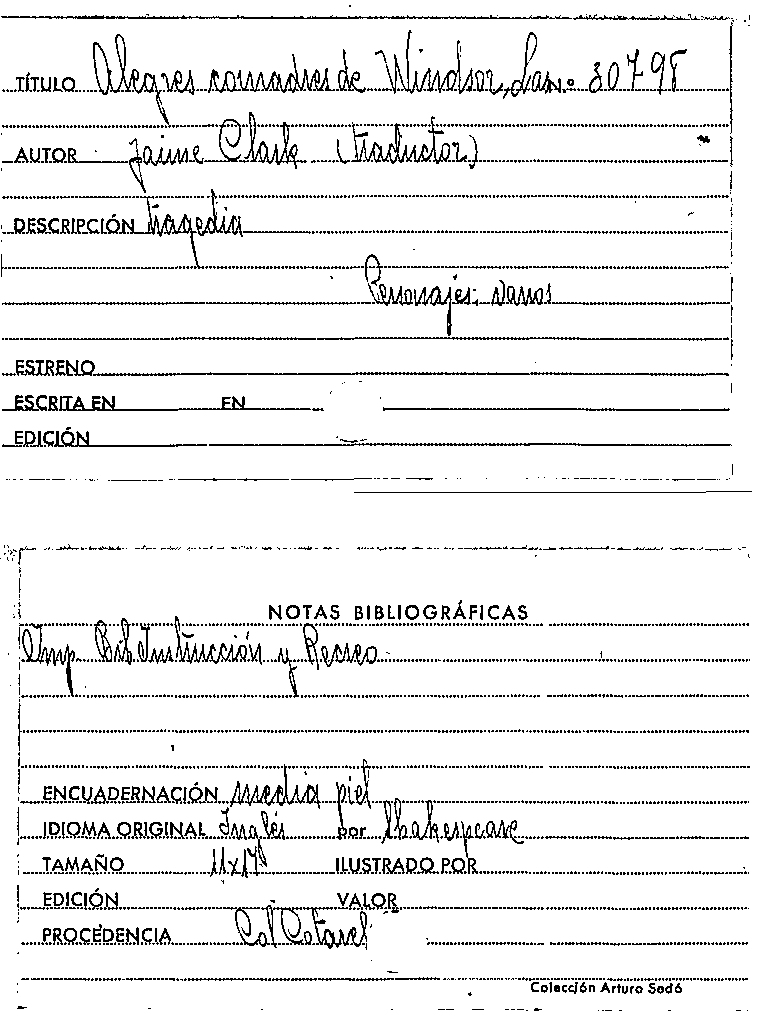 TÍTULO Alegres comadres de Windsor, Las nº 30798
AUTOR Jaime Clark (traductor)
DESCRIPCIÓN tragedia
Personajes: varios
ESTRENO
ESCRITA EN EN
EDICIÓN
NOTAS BIBLIOGRÁFICAS
Imp. Bib Instrucción y Recreo
ENCUADERNACIÓN media piel
IDIOMA ORIGINAL Inglés por Shakespeare
TAMAÑO ILUSTRADO POR
EDICIÓN VALOR
PROCEDENCIA Col Cotarel
Colección Arturo Sedó